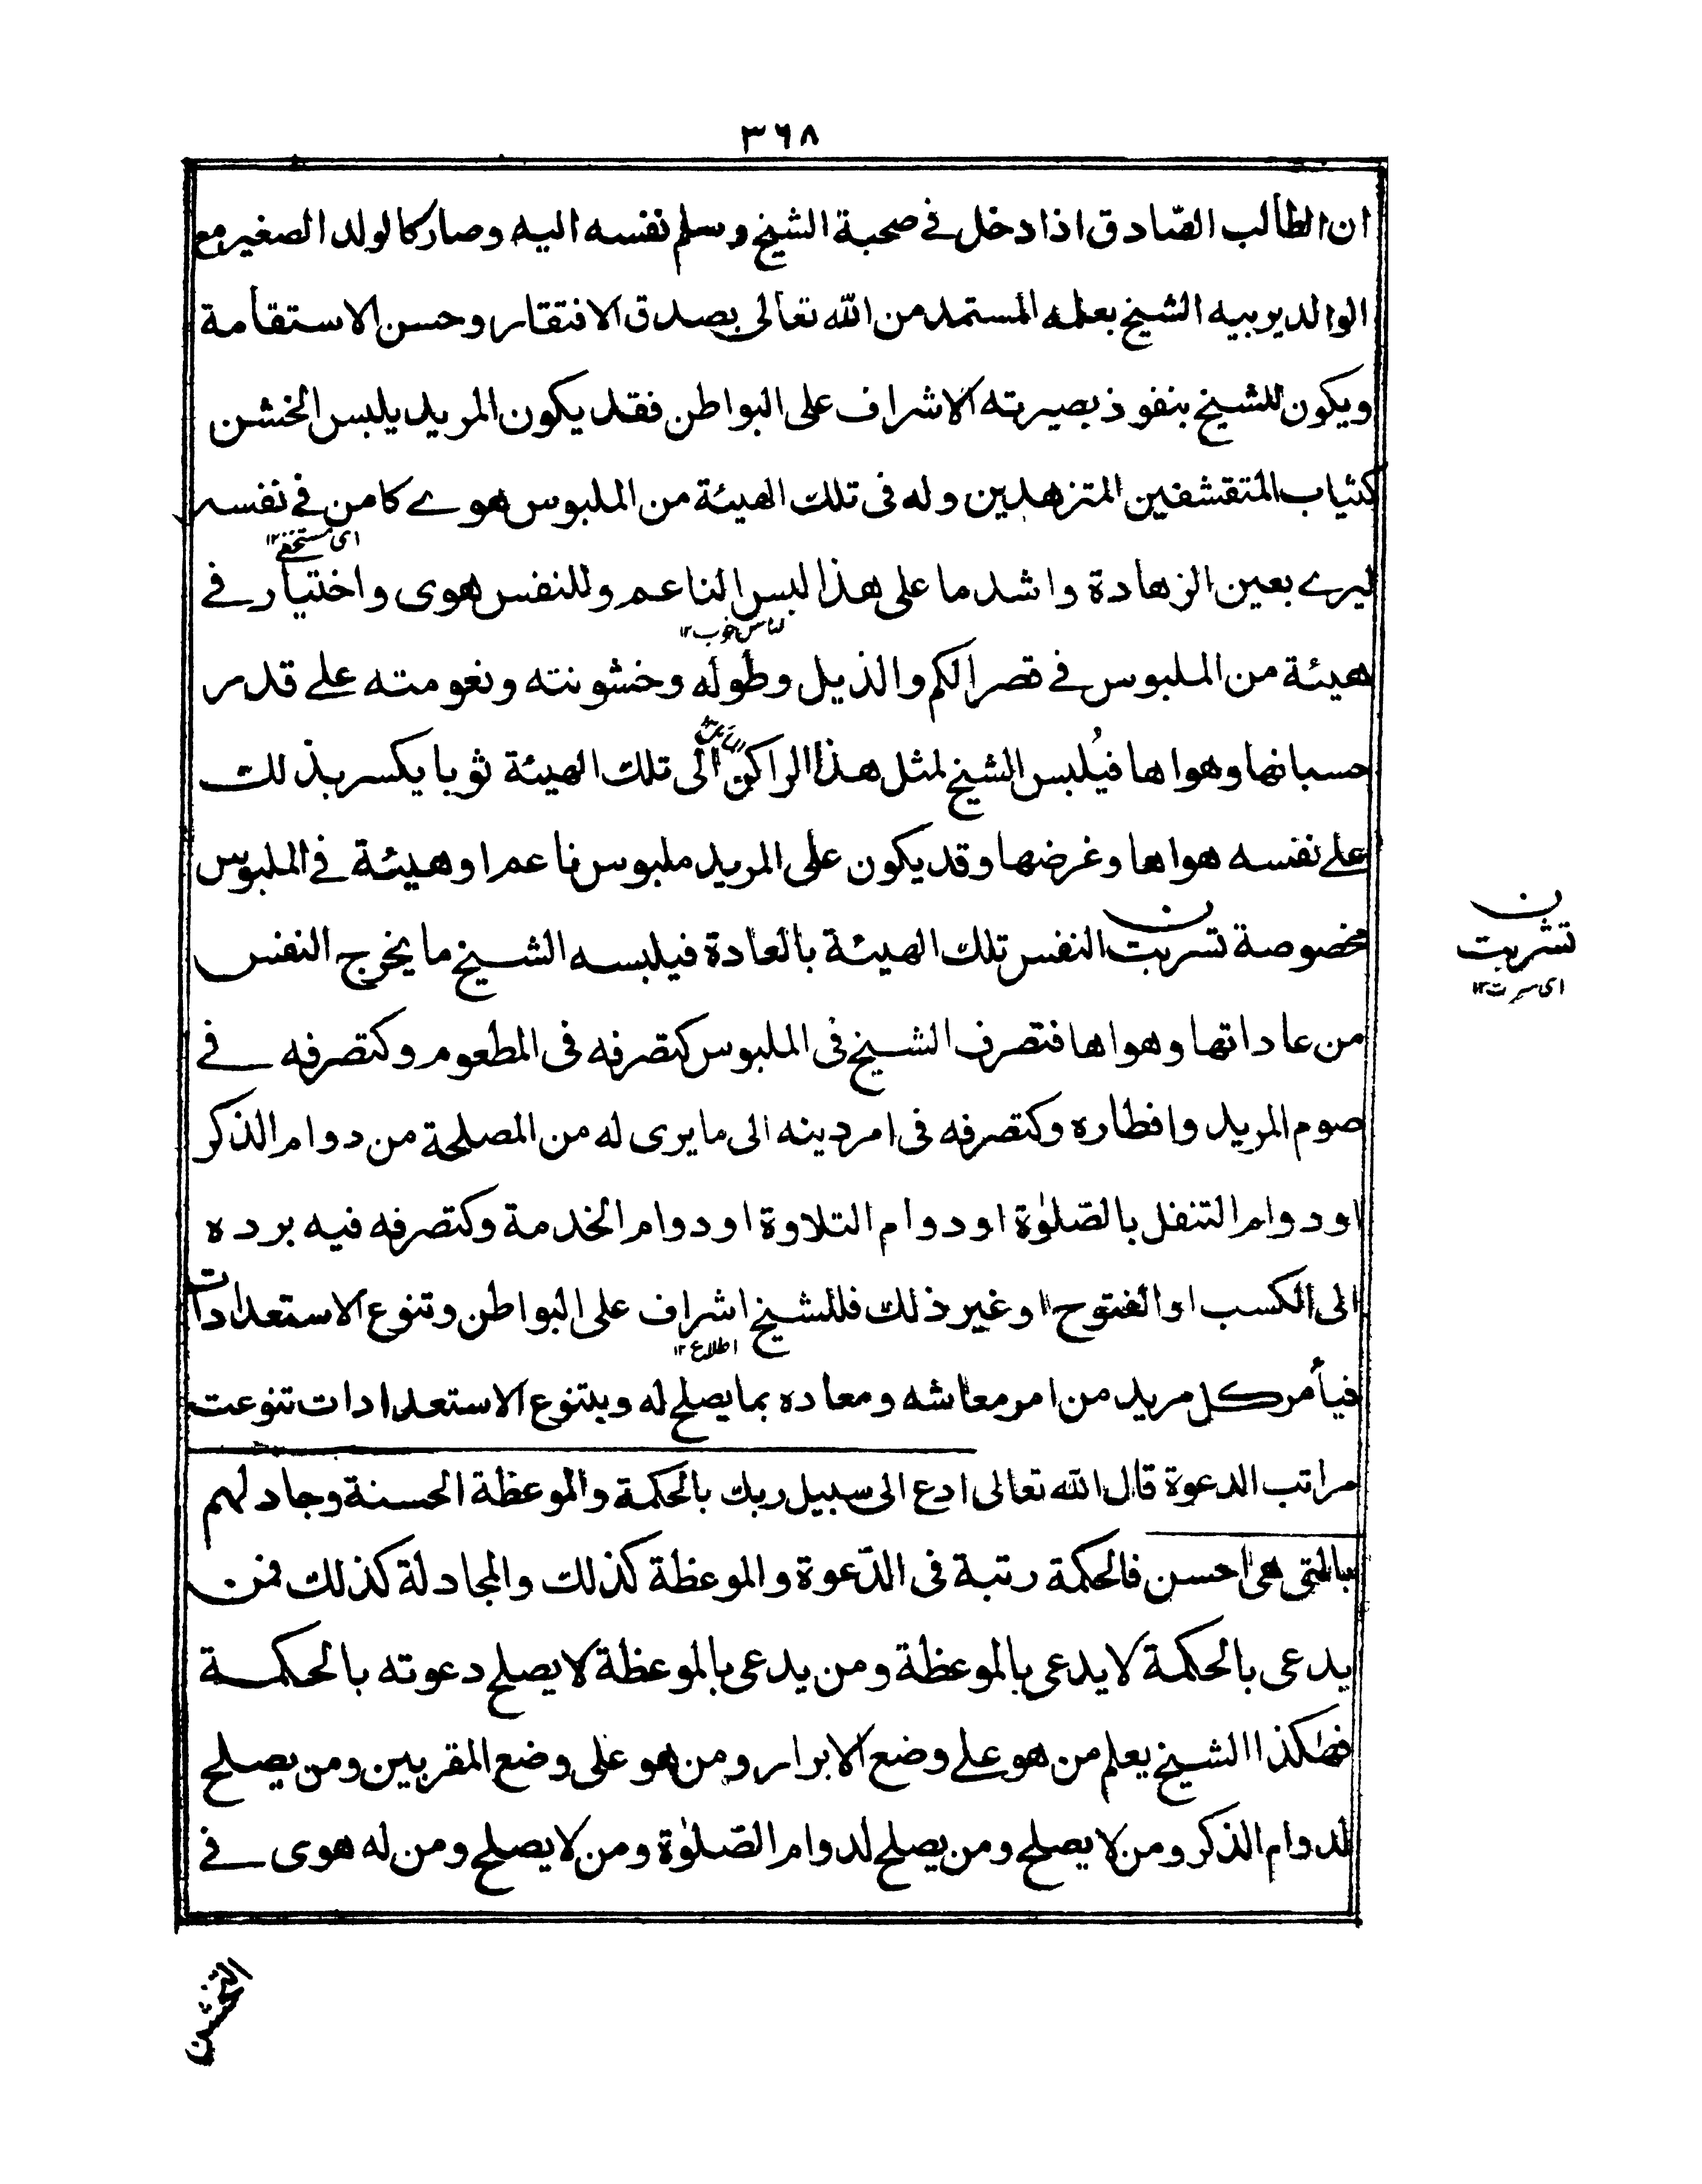 ٣٦٨
ان الطالب الصّادق اذا دخل فے صحبة الشيخ وسلم نفسه اليه وصار كالولد الصغير مع
الوالد يربيه الشيخ بعلمه المستمد من الله تعالى بصدق الافتقار وحسن الاستقامة
ويكون للشيخ بنفوذ بصيرته الاشراف على البواطن فقد يكون المريد يلبس الخشن
كثياب المتقشفين المتزهدين وله فى تلك الهيئة من الملبوس هوے كامن فے نفسه
اى مستخفے ١٢
ليرے بعين الزهادة واشد ما على هذا لبس الناعم وللنفس هوى واختيار فے
لباس خوب ١٢
هيئة من الملبوس فے قصر الكم والذيل وطوله وخشونته ونعومته علے قدر
حسبانها وهواها فيُلبس الشيخ لمثل هذا الراكن الى تلك الهيئة ثوبا يكسر بذلك
علے نفسه هواها وغرضها وقد يكون على المريد ملبوس ناعم او هيئة فے الملبوس
مخصوصة تسربت النفس تلك الهيئة بالعادة فيلبسه الشيخ ما يخرج النفس
ن
تشربت
اى سرت ١٢
من عاداتها وهواها فتصرف الشيخ فى الملبوس كتصرفه فى المطعوم وكتصرفه فے
صوم المريد وافطاره وكتصرفه فى امر دينه الى ما يرى له من المصلحة من دوام الذكر
او دوام التنفل بالصّلوٰة او دوام التلاوة او دوام الخدمة وكتصرفه فيه برده
الى الكسب او الفتوح او غير ذلك فللشيخ اشراف على البواطن وتنوع الاستعدادات
اطلاع ١٢
فيأمر كل مريد من امر معاشه ومعاده بما يصلح له وبتنوع الاستعدادات تنوعت
مراتب الدعوة قال الله تعالى ادع الى سبيل ربك بالحكمة والموعظة الحسنة وجادلهم
بالتى هى احسن فالحكمة رتبة فى الدّعوة والموعظة كذلك والمجادلة كذلك فمن
يدعى بالحكمة لا يدعى بالموعظة ومن يدعى بالموعظة لا يصلح دعوته بالحكمة
فهٰكذا الشيخ يعلم من هو علے وضع الابرار ومن هو على وضع المقربين ومن يصلح
لدوام الذكر ومن لا يصلح ومن يصلح لدوام الصّلوٰة ومن لا يصلح ومن له هوى فے
التخشن